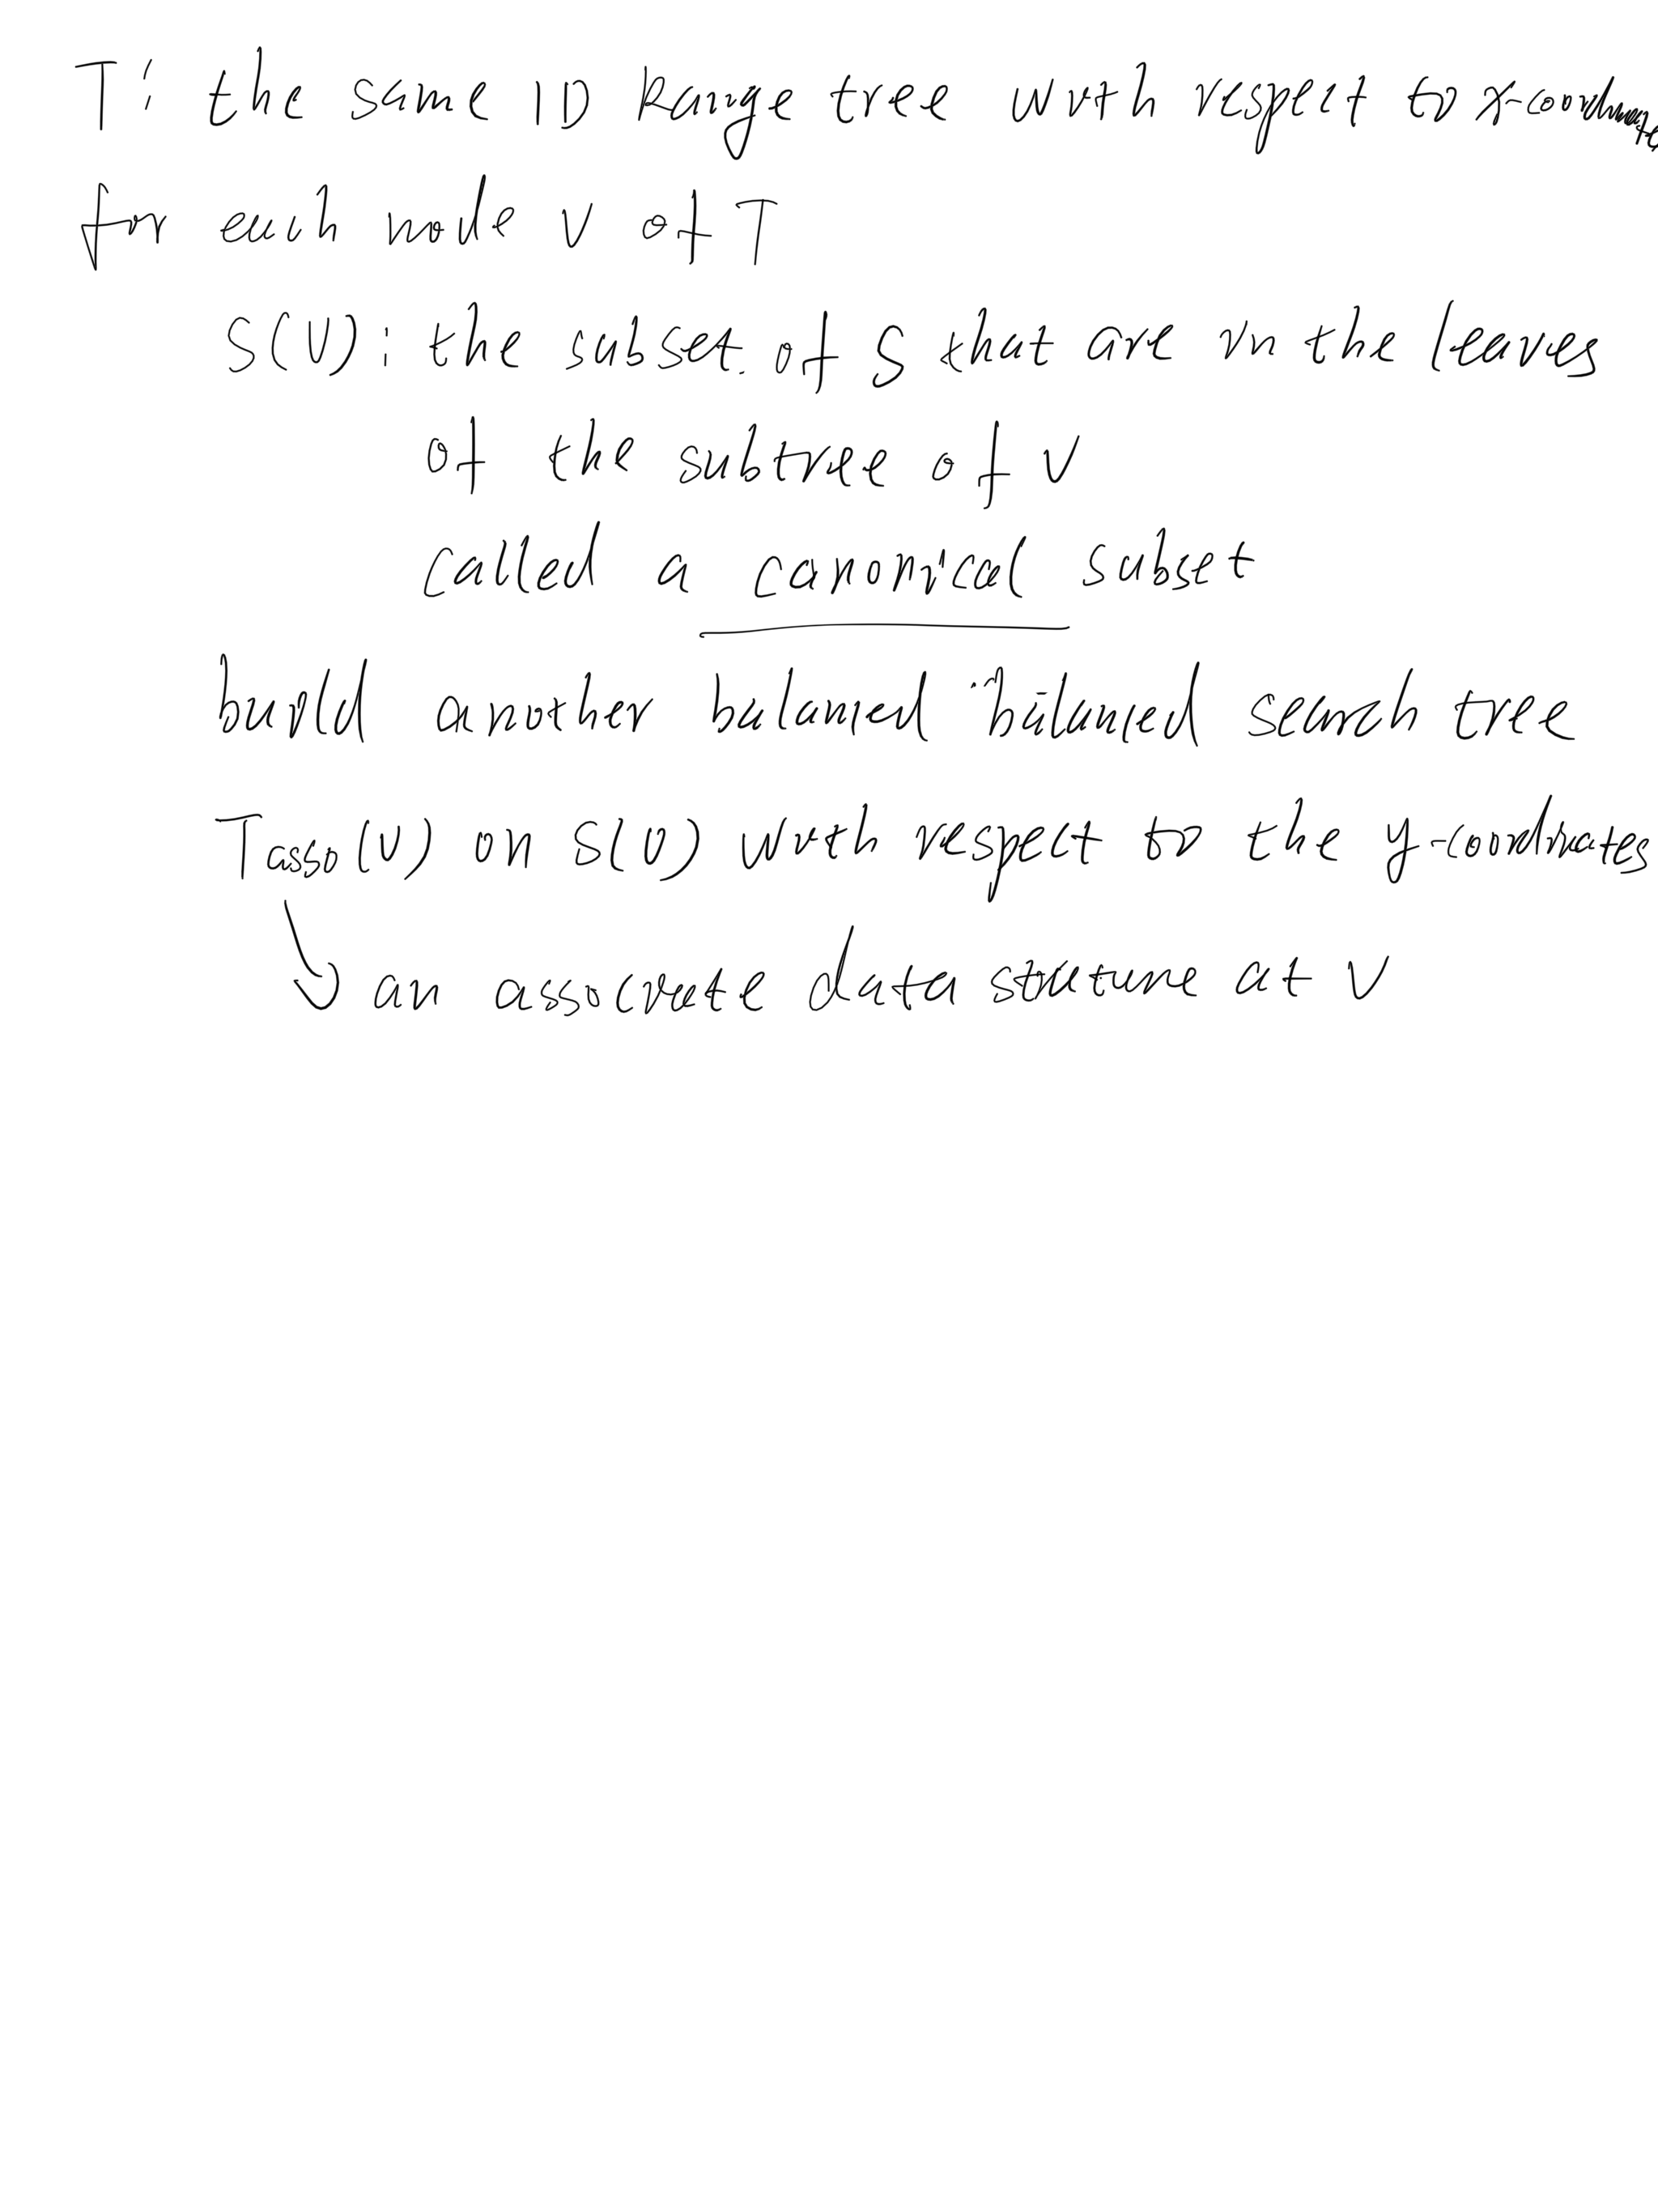 T: the same 1D Range tree with respect to x-coordinates
for each node v of T
S(v): the subset of S that are in the leaves
of the subtree of v
called a canonical subset
build another balanced balanced search tree
Tasso(v) on S(v) with respect to the y-coordinates
an associate data structure at v